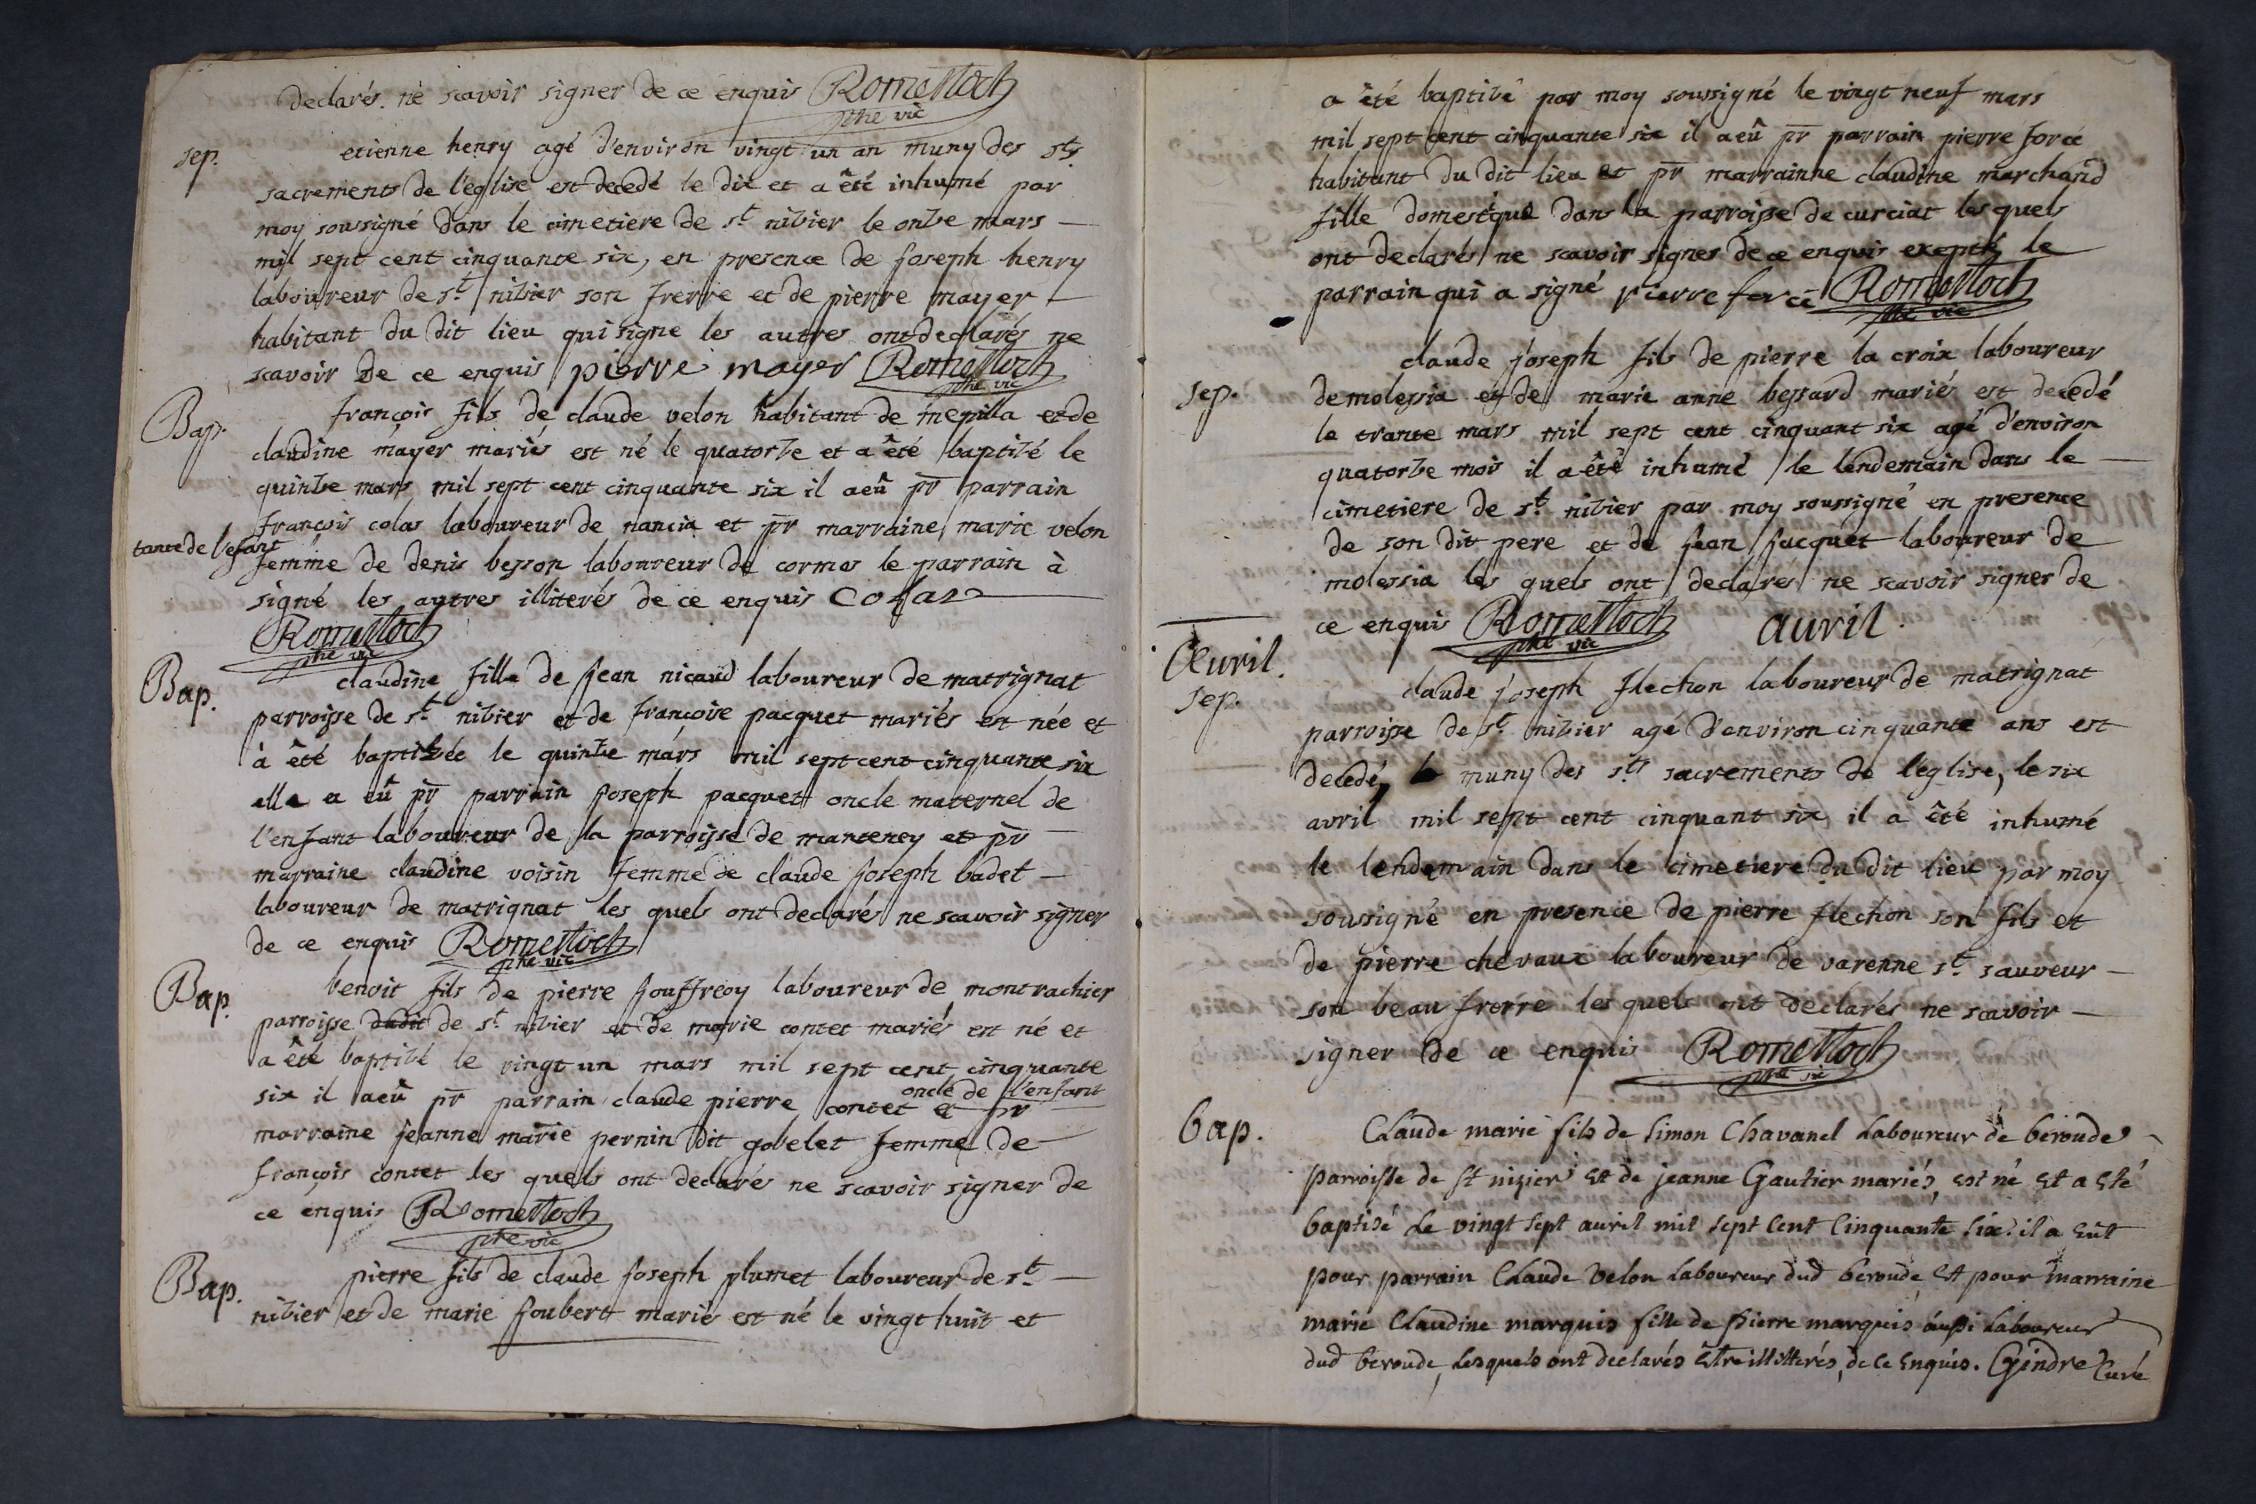 declarés ne scavoir signer de ce enquis Romestoch
ptre vic
sep.
etienne henry agé d'environ vingt un an muny des sts
sacrements de l'eglise est decedé le dix et a êté inhumé par
moy sousigné dans le cimetiere de st nibier le onze mars
mil sept cent cinquante six, en presence de joseph henry
laboureur de st nibier son frerre et de pierre mayer
habitant du dit lieu qui signe les autres ont declarés ne
scavoir de ce enquis pierre mayer Romestoch
ptre vic
Bap.
françois fils de claude velon habitant de mepilla et de
claudine mayer mariés est né le quatorze et a été baptizé le
quinze mars mil sept cent cinquante six il a eû pr parrain
françois colas laboureur de nancia et pr marraine marie velon
tante de l'efant
femme de denis besson laboureur de cormos le parrain à
signé les autres illiterés de ce enquis Colas
Romestoch
ptre vic
Bap.
claudine fille de jean nicaud laboureur de matrignat
parroisse de st nibier et de francoise pacquet mariés est née et
à êté baptizée le quinze mars mil sept cent cinquante six
elle a eû pr parrain joseph pacquet oncle maternel de
l'enfant laboureur de la parroisse de manteney et pr
marraine claudine voisin femme de claude joseph badet
laboureur de matrignat les quels ont declarés ne scavoir signer
de ce enquis Romestoch
ptre vic
Bap.
benoit fils de pierre jouffreoy laboureur de montrachier
parroisse dudit de st nibier et de marie contet mariés est né et
a êté baptizé le vingt un mars mil sept cent cinquante
oncle de l'enfant
six il a eû pr parrain claude pierre contet et pr
marraine jeanne marie pernin dit gobelet femme de
françois contet les quels ont declarés ne scavoir signer de
ce enquis Romestoch
ptre vic
Bap.
pierre fils de claude joseph plumet laboureur de st
nibier et de marie joubert mariés est né le vingt huit et
a êté baptizé par moy soussigné le vingt neuf mars
mil sept cent cinquante six il a eû pr parrain pierre forcé
habitant du dit lieu et pr marrainne claudine marchand
fille domestique dans la parroisse de curciat les quels
ont declarés ne scavoir signer de ce enquis exepté le
parrain qui a signé pierre forcé Romestoch
ptre vic
sep.
claude joseph fils de pierre la croix laboureur
de molessia et de marie anne bessard mariés est decedé
le trante mars mil sept cent cinquant six agé d'environ
quatorze mois il a êté inhumé le lendemain dans le
cimetiere de st nibier par moy soussigné en presence
de son dit pere et de jean jacquet laboureur de
molessia les quels ont declarés ne scavoir signer de
ce enquis Romestoch
ptre vic
auvril
Œuvril.
sep.
claude joseph flechon laboureur de matrignat
parroisse de st nibier agé d'environ cinquante ans est
decedé, muny des sts sacrements de l'eglise, le six
avril mil sept cent cinquant six il a êté inhumé
le lendemain dans le cimetiere du dit lieu par moy
soussigné en presence de pierre flechon son fils et
de pierre chevaux laboureur de varenne st sauveur
son beau frerre les quels ont declarés ne scavoir
signer de ce enquis Romestoch
ptre vic
bap.
Claude marie fils de Simon Chavanel Laboureur de beroude
parroisse de St nizier et de jeanne Gautier mariés, est né et a eté
baptisé Le vingt sept auvril mil sept Cent Cinquante six. il a eut
pour parrain Claude Velon Laboureur dud beroude, et pour marraine
marie Claudine marquis fille de Pierre marquis aussi Laboureur
dud beroude, Lesquels ont declarés être illitterés, de ce enquis. Gindre Curé